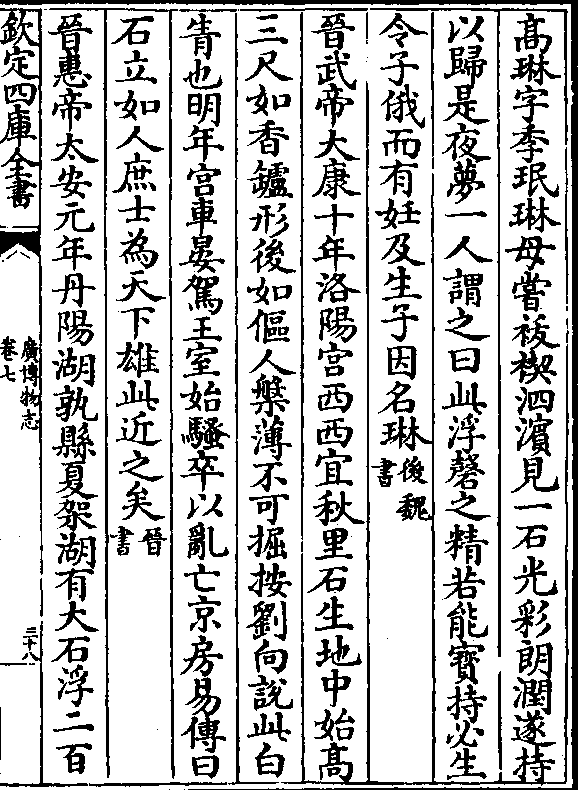 髙琳字季珉琳母嘗祓禊泗濵見一石光彩朗潤遂持
以歸是夜夢一人謂之曰此浮磬之精若能寳持必生
令子俄而有妊及生子因名琳後魏書
晉武帝大康十年洛陽宫西西宜秋里石生地中始髙
三尺如香鑪形後如傴人槃薄不可掘按劉向說此白
眚也明年宫車晏駕王室始騷卒以亂亡京房易傳曰
石立如人庶士為天下雄此近之矣晉書
晉惠帝太安元年丹陽湖孰縣夏架湖有大石浮二百
欽定四庫全書
廣博物志
卷七
三十八